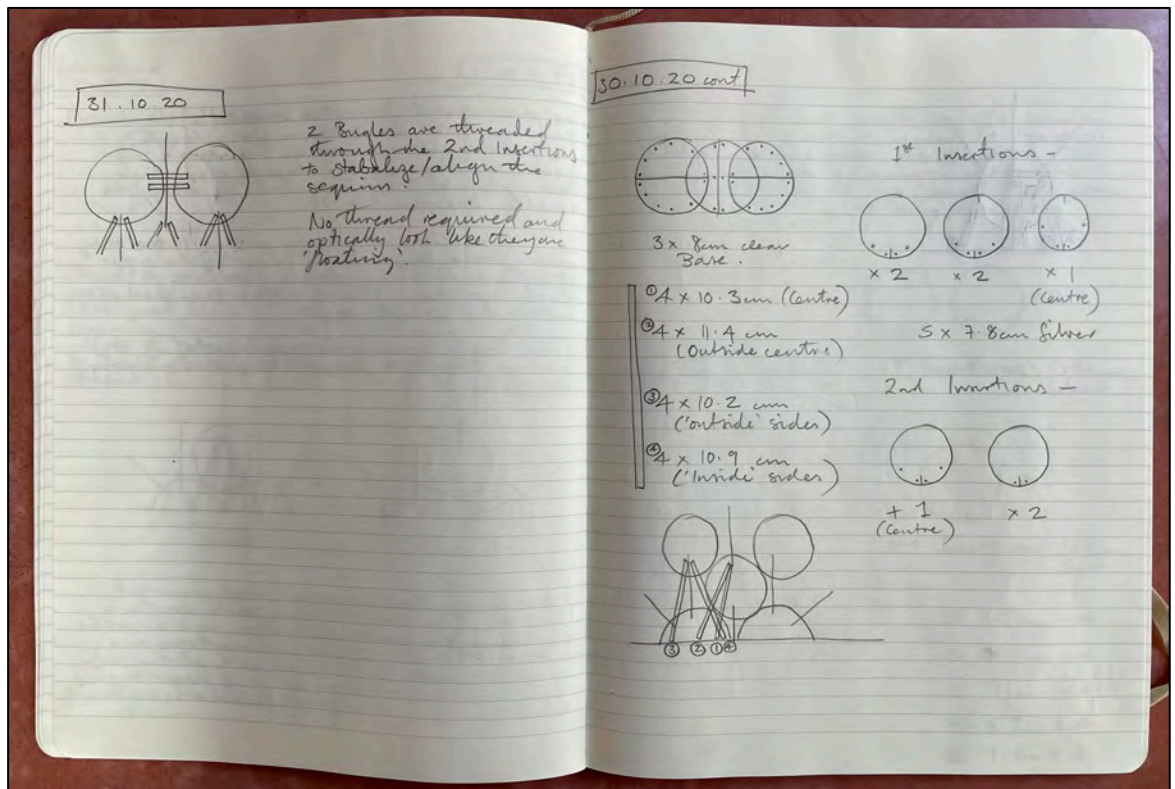 31.10.20
2 Bugles are threaded
through the 2nd Insertions
to stabalize/align the
sequins.
No thread required and
optically look like they are
'floating'.
30.10.20 cont
3 x 8cm clear
Base.
① 4 x 10.3cm (Centre)
② 4 x 11.4 cm
(Outside centre)
③ 4 x 10.2 cm
('outside' sides)
④ 4 x 10.9 cm
('Inside' sides)
③ ② ① ④
1st Insertions -
x 2 x 2 x 1
(centre)
5 x 7.8cm Silver
2nd Insertions -
+ 1 x 2
(centre)